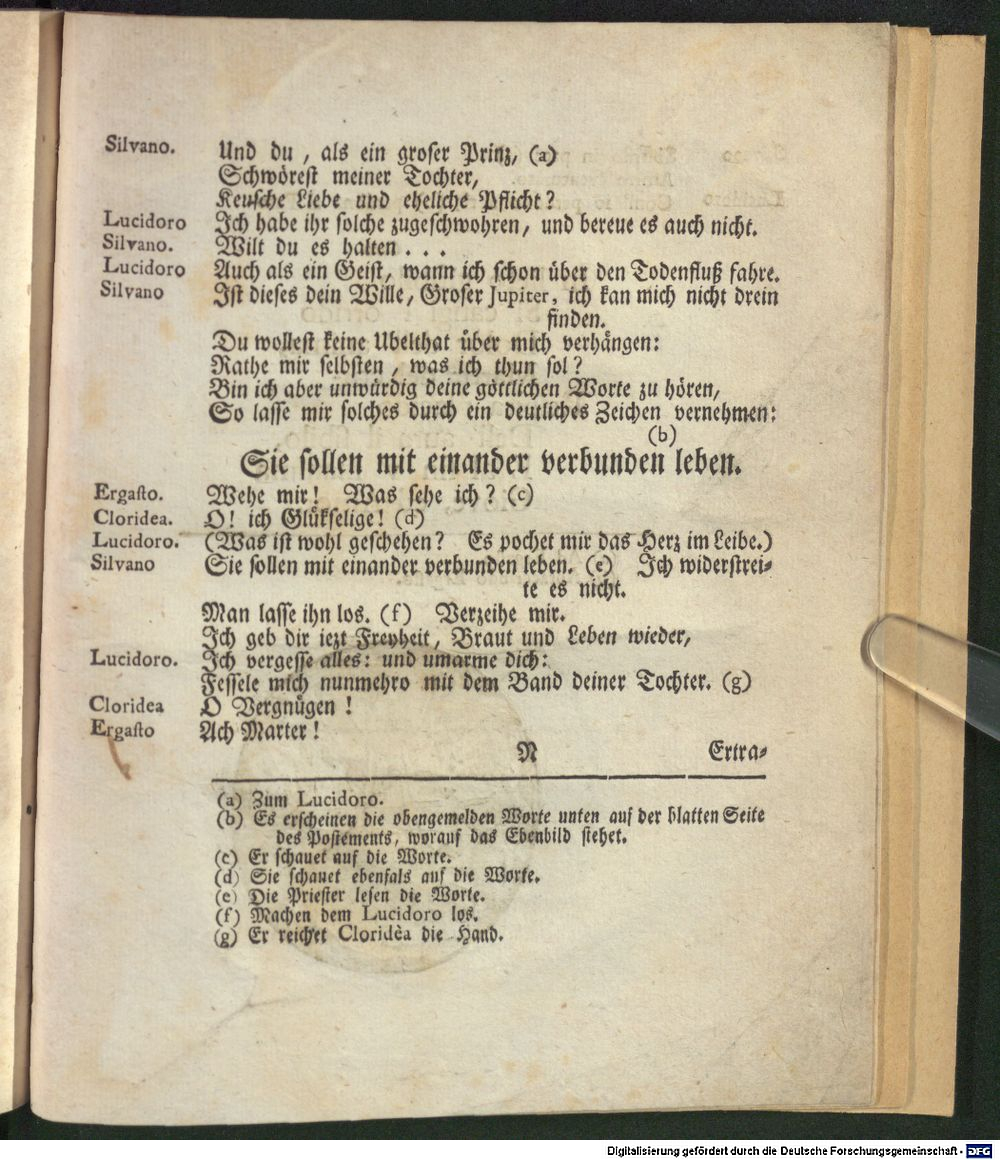 Silvano. Und du, als ein groser Prinz, (a)
Schwörest meiner Tochter,
Keusche Liebe und eheliche Pflicht?
Lucidoro Ich habe ihr solche zugeschwohren, und bereue es auch nicht.
Silvano. Wilt du es halten . . .
Lucidoro Auch als ein Geist, wann ich schon über den Todenfluß fahre.
Silvano Ist dieses dein Wille, Groser Jupiter, ich kan mich nicht drein
finden.
Du wollest keine Ubelthat über mich verhängen:
Rathe mir selbsten, was ich thun sol?
Bin ich aber unwürdig deine göttlichen Worte zu hören,
So lasse mir solches durch ein deutliches Zeichen vernehmen:
(b)
Sie sollen mit einander verbunden leben.
Ergasto. Wehe mir! Was sehe ich? (c)
Cloridea. O! ich Glükselige! (d)
Lucidoro. (Was ist wohl geschehen? Es pochet mir das Herz im Leibe.)
Silvano Sie sollen mit einander verbunden leben. (e) Ich widerstrei-
te es nicht.
Man lasse ihn los. (f) Verzeihe mir.
Ich geb dir iezt Freyheit, Braut und Leben wieder,
Lucidoro. Ich vergesse alles: und umarme dich:
Fessele mich nunmehro mit dem Band deiner Tochter. (g)
Cloridea O Vergnügen!
Ergasto Ach Marter!
N Extra-
(a) Zum Lucidoro.
(b) Es erscheinen die obengemelden Worte unten auf der blatten Seite
des Postements, worauf das Ebenbild stehet.
(c) Er schauet auf die Worte.
(d) Sie schauet ebenfals auf die Worte.
(e) Die Priester lesen die Worte.
(f) Machen dem Lucidoro los.
(g) Er reichet Cloridèa die Hand.
Digitalisierung gefördert durch die Deutsche Forschungsgemeinschaft - DFG